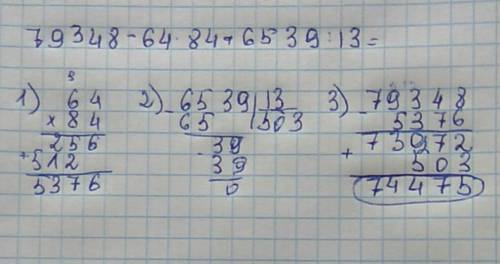 79348-64·84+6539:13=
1) 64
× 84
256
+512
5376
2) - 6539|13
65 |503
- 39
39
0
3) - 79348
5376
73972
+ 503
74475